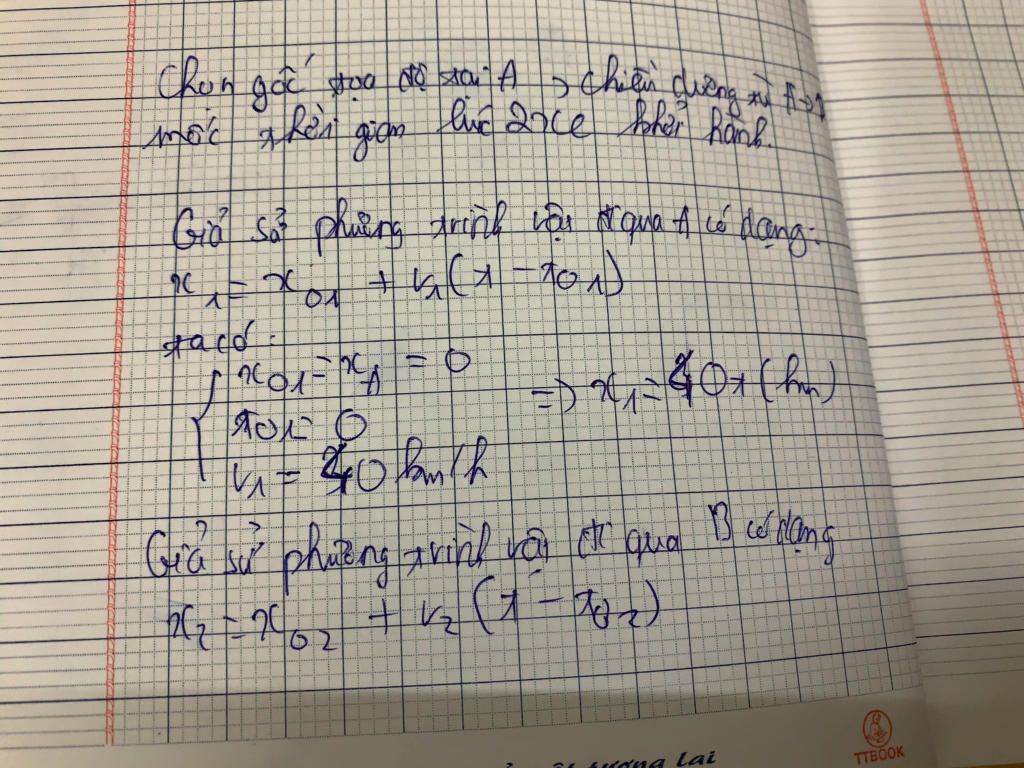 Chọn gốc tọa độ tại A, chiều dương từ A->
mốc thời gian lúc 2 xe khởi hành.
Giả sử phương trình vật đi qua A có dạng:
x₁ = x₀₁ + v₁(t - t₀₁)
ta có:
x₀₁ = x_A = 0
t₀₁ = 0 => x₁ = 40t (km)
v₁ = 40 km/h
Giả sử phương trình vật đi qua B có dạng
x₂ = x₀₂ + v₂(t - t₀₂)
tương lai
TTBOOK